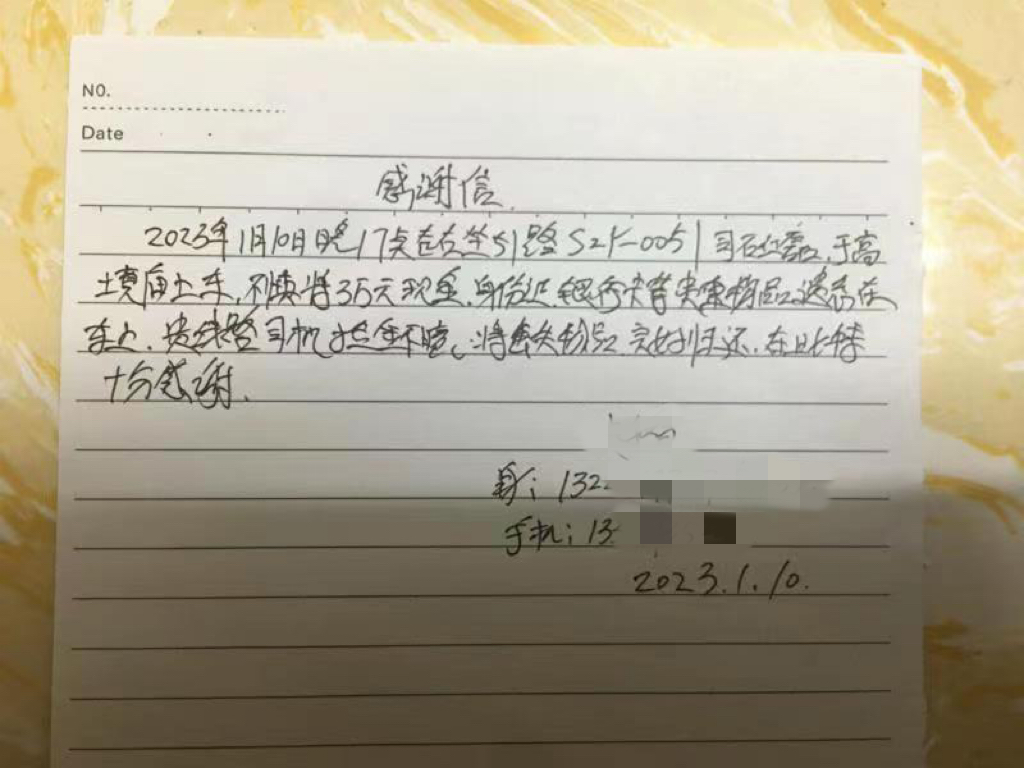 NO.
Date
感谢信.
2023年1月10日晚17点在乘坐51路S2K-0051司石红磊,于高
境庙上车,不慎将3万元现金,身份证 银行卡等贵重物品遗忘在
车上.
司机拾金不昧,将丢失物品完好归还.在此特
十分感谢.
身:132
手机:13
2023.1.10.